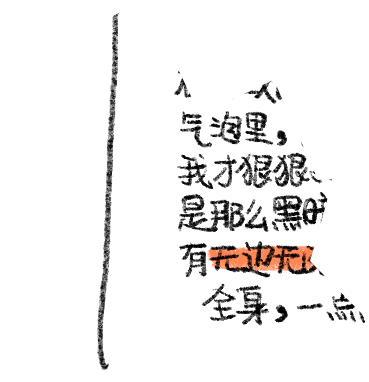 气泡里，
我才狠狠
是那么黑暗
有无边无
全身，一点